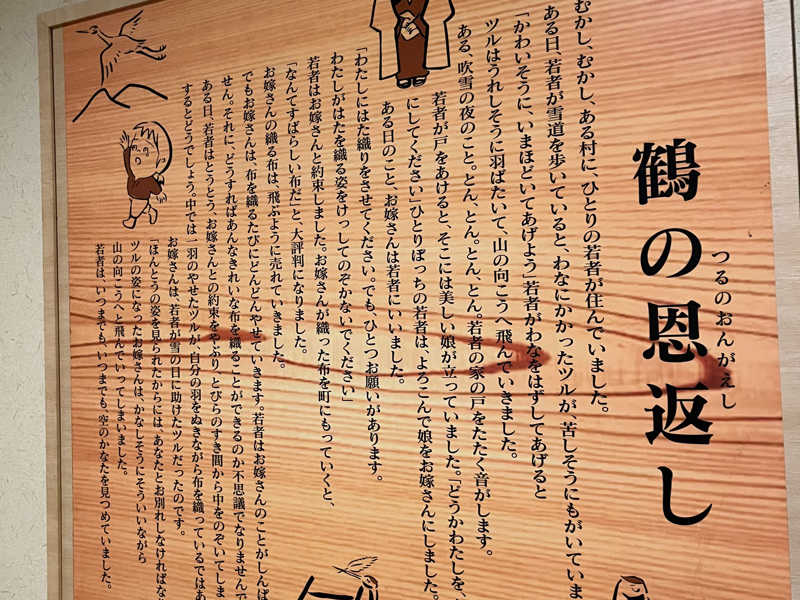 鶴の恩返し
つるのおんがえし
むかし、むかし、ある村に、ひとりの若者が住んでいました。
ある日、若者が雪道を歩いていると、わなにかかったツルが、苦しそうにもがいていま
「かわいそうに、いまほどいてあげよう」若者がわなをはずしてあげると
ツルはうれしそうに羽ばたいて、山の向こうへ飛んでいきました。
ある、吹雪の夜のこと。とん、とん。とん、とん。若者の家の戸をたたく音がします。
若者が戸をあけると、そこには美しい娘が立っていました。「どうかわたしを、
にしてください」ひとりぼっちの若者は、よろこんで娘をお嫁さんにしました。
ある日のこと、お嫁さんは若者にいいました。
「わたしにはた織りをさせてください。でも、ひとつお願いがあります。
わたしがはたを織る姿をけっしてのぞかないでください」
若者はお嫁さんと約束しました。お嫁さんが織った布を町にもっていくと、
「なんてすばらしい布だ」と、大評判になりました。
お嫁さんの織る布は、飛ぶように売れていきました。
でもお嫁さんは、布を織るたびにどんどんやせていきます。若者はお嫁さんのことがしんぱ
せん。それに、どうすればあんなきれいな布を織ることができるのか不思議でなりませんで
ある日、若者はとうとう、お嫁さんとの約束をやぶり とびらのすき間から中をのぞいてしま
するとどうでしょう。中では一羽のやせたツルが、自分の羽をぬきながら布を織っているではあ
お嫁さんは、若者が雪の日に助けたツルだったのです。
「ほんとうの姿を見られたからには、あなたとお別れしなければな
ツルの姿になったお嫁さんは、かなしそうにそういいながら
山の向こうへと飛んでいってしまいました。
若者は、いつまでも、いつまでも、空のかなたを見つめていました。